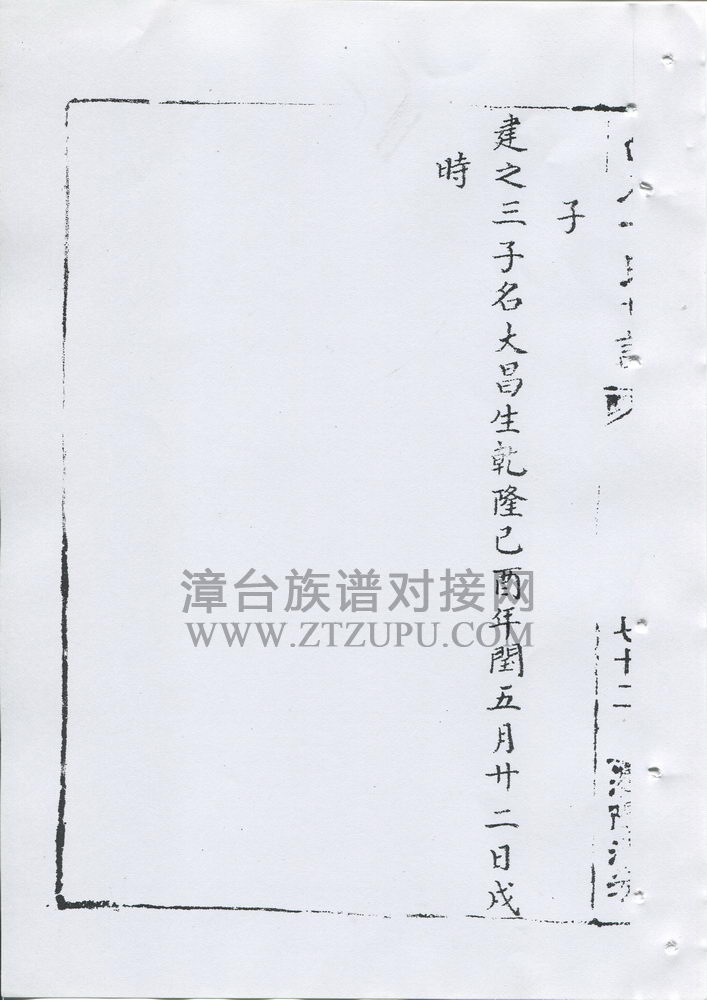 七十二
子
建之三子名大昌生乾隆己酉年閏五月廿二日戌
時
漳台族谱对接网
WWW.ZTZUPU.COM